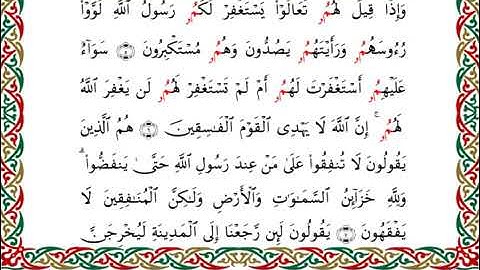 وَإِذَا قِيلَ لَهُمُۥ تَعَالَوْا۟ يَسْتَغْفِرْ لَكُمُۥ رَسُولُ ٱللَّهِ لَوَّوْا۟
رُءُوسَهُمُۥ وَرَأَيْتَهُمُۥ يَصُدُّونَ وَهُمُۥ مُسْتَكْبِرُونَ ۝٥ سَوَآءٌ
عَلَيْهِمُۥ أَسْتَغْفَرْتَ لَهُمُۥ أَمْ لَمْ تَسْتَغْفِرْ لَهُمُۥ لَن يَغْفِرَ ٱللَّهُ
لَهُمُۥ ۚ إِنَّ ٱللَّهَ لَا يَهْدِى ٱلْقَوْمَ ٱلْفَـٰسِقِينَ ۝٦ هُمُ ٱلَّذِينَ
يَقُولُونَ لَا تُنفِقُوا۟ عَلَىٰ مَنْ عِندَ رَسُولِ ٱللَّهِ حَتَّىٰ يَنفَضُّوا۟ ۗ
وَلِلَّهِ خَزَآئِنُ ٱلسَّمَـٰوَٰتِ وَٱلْأَرْضِ وَلَـٰكِنَّ ٱلْمُنَـٰفِقِينَ لَا
يَفْقَهُونَ ۝٧ يَقُولُونَ لَئِن رَّجَعْنَا إِلَى ٱلْمَدِينَةِ لَيُخْرِجَنَّ